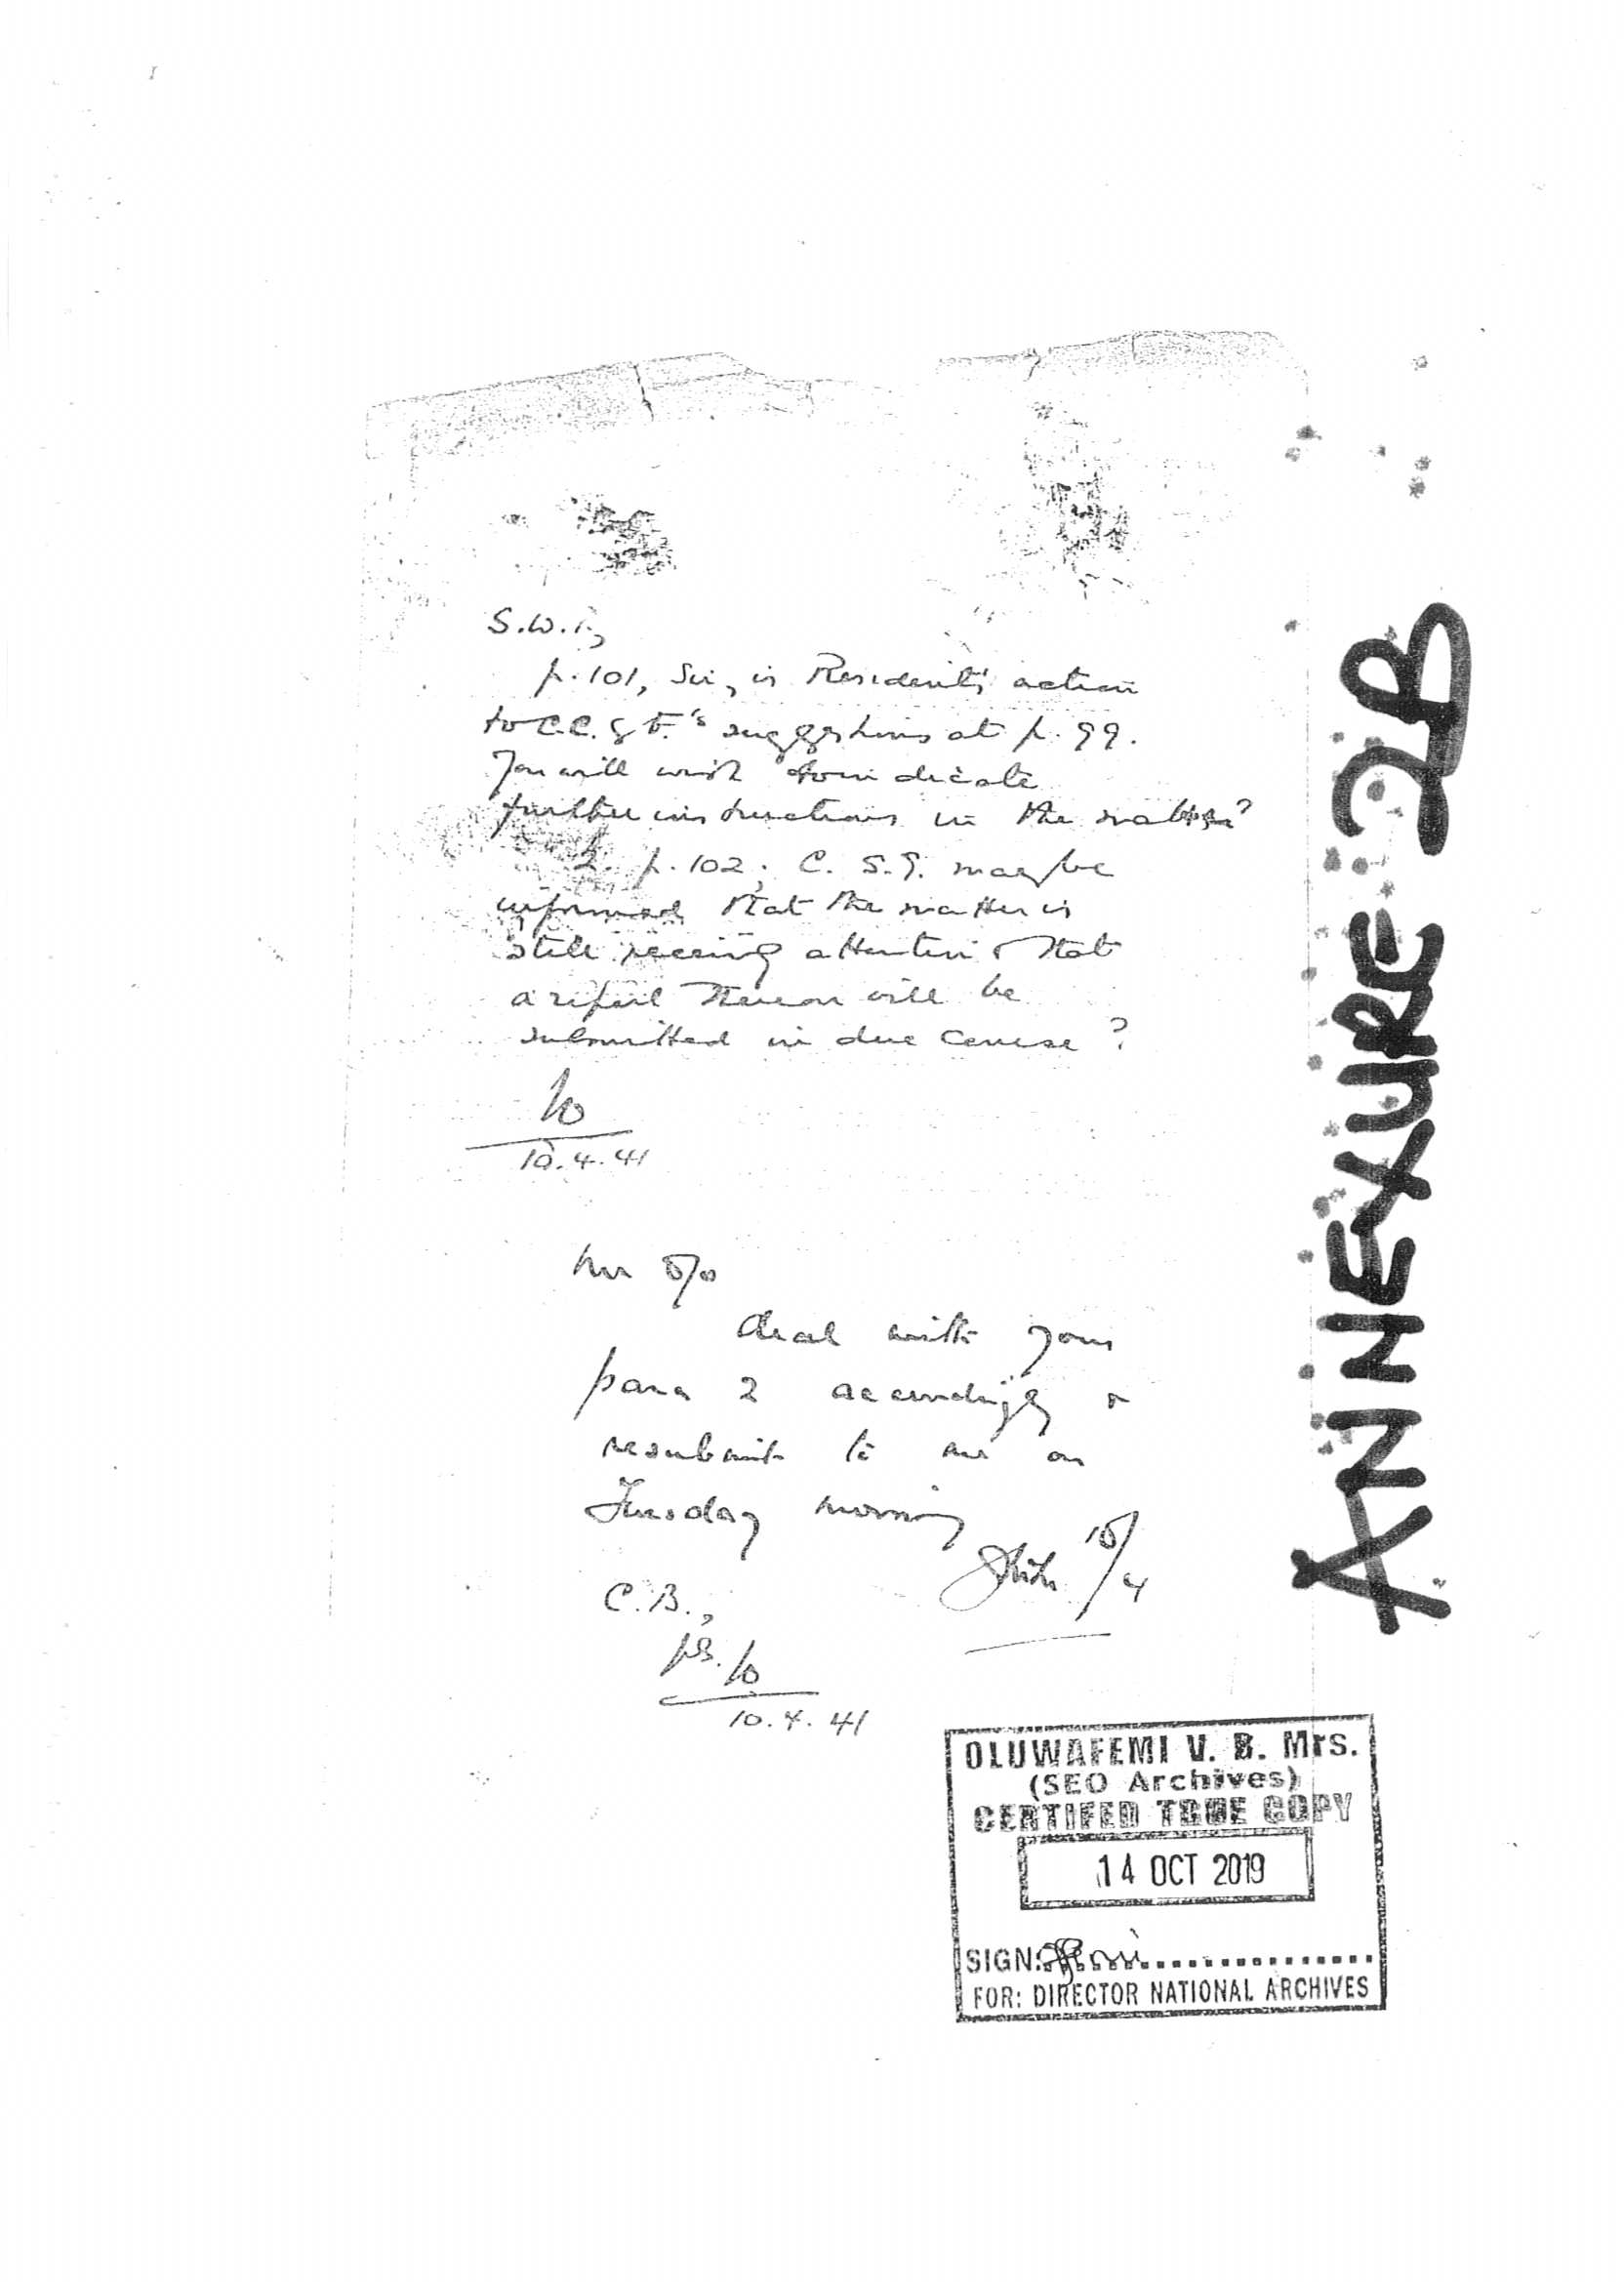 S.W.P.,
p. 101, Sir, is Resident's action
to C.C. & F.'s suggestions at p. 99.
You will wish to indicate
further instructions in the matter?
2. p. 102; C. S. G. may be
informed that the matter is
still receiving attention & that
a report thereon will be
submitted in due course ?
10.4.41
Mr
deal with your
para 2 accordingly &
resubmit to me on
Tuesday morning
10/4
C.B.,
10.4.41
ANNEXURE 2B
OLUWAFEMI V. B. Mrs.
(SEO Archives)
CERTIFED TRUE COPY
14 OCT 2019
SIGN:
FOR: DIRECTOR NATIONAL ARCHIVES